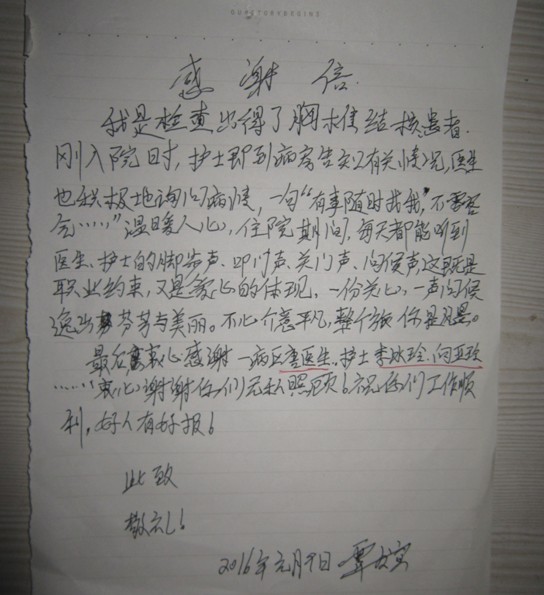 感谢信
我是检查出得了胸椎结核患者.
刚入院时,护士即到病房告知有关情况,医生
也积极地询问病情,一句“有事随时找我,不要客
气……”温暖人心,住院期间,每天都能听到
医生、护士的脚步声、叩门声、关门声、问候声这既是
职业约束,又是爱心的体现,一份关心,一声问候
逸出芬芳与美丽。不必介意平凡,整个旅你是风景。
最后衷心感谢一病区李医生,护士李冰玲、向亚玲
……衷心谢谢你们无私照顾!祝你们工作顺
利,好人有好报!
此致
敬礼!
2016年元月9日 覃